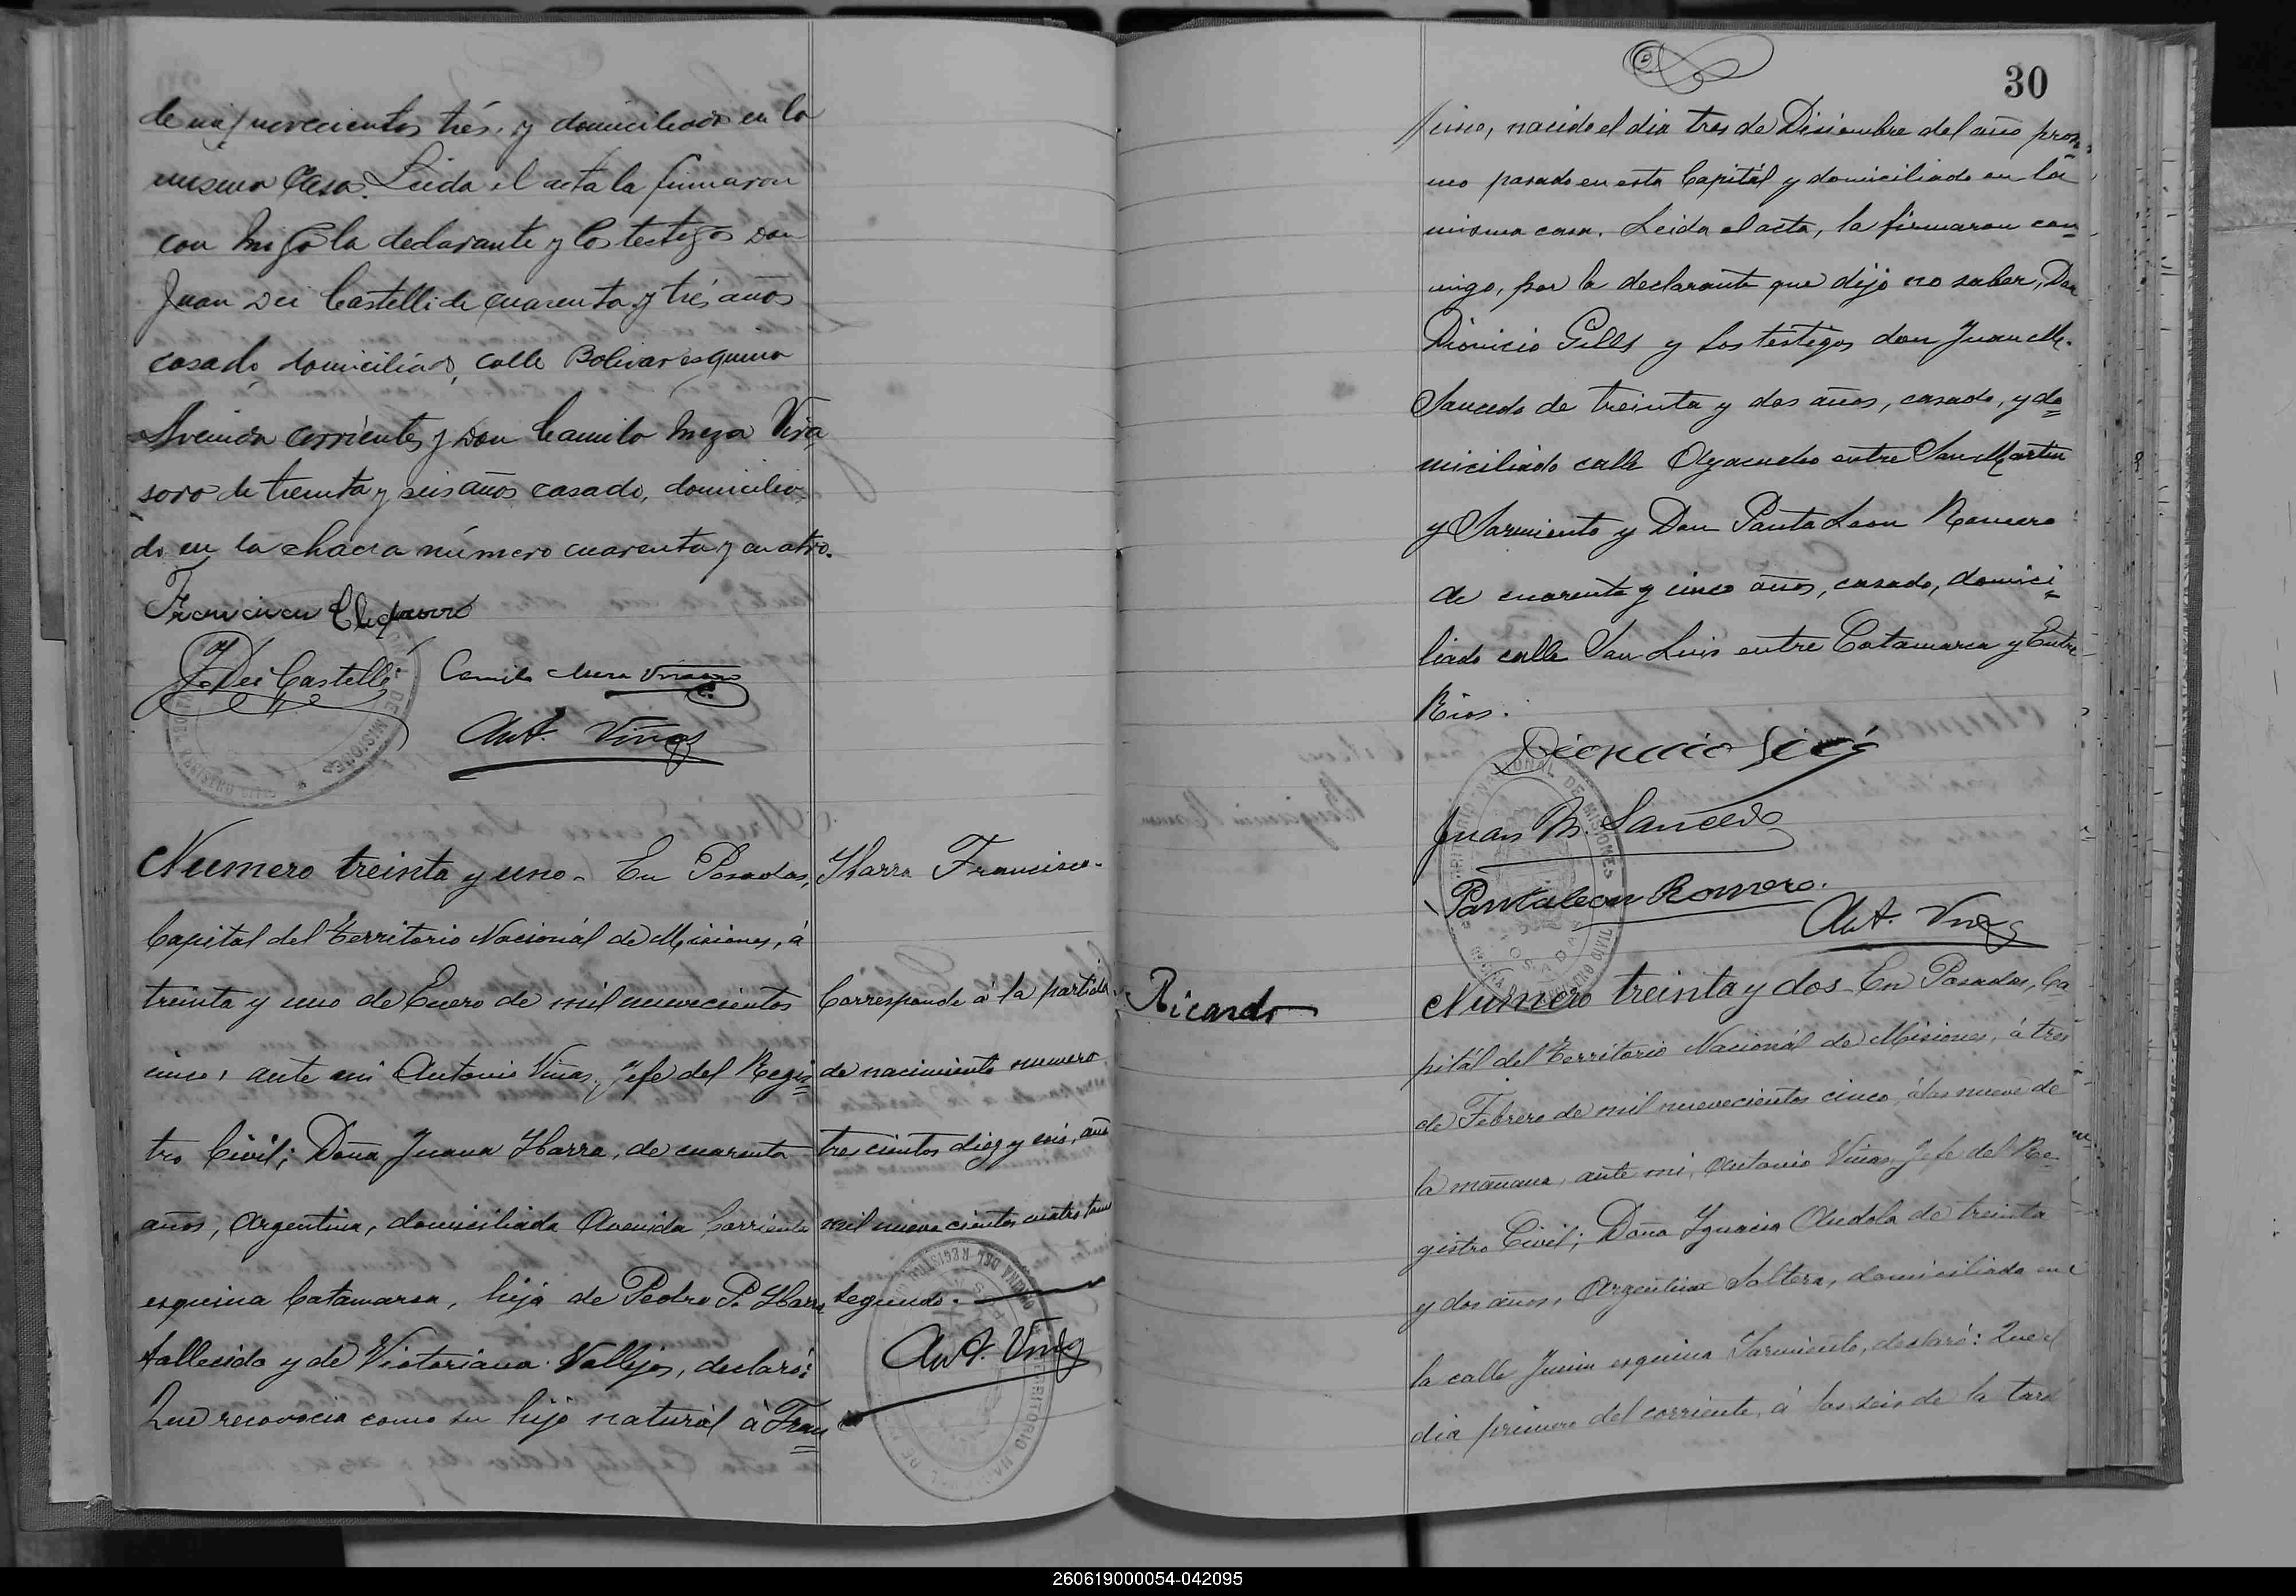 de mil novecientos trés. y domiciliado en la
misma Casa. Leida el acta la firmaron
con migo la declarante y los testigos Don
Juan Dei Castelli de cuarenta y trés años
casado, domiciliado, calle Bolivar esquina
Avenida Corrientes y Don Camilo Meza Vira
soro de treinta y seis años casado, domicilia
do en la chacra número cuarenta y cuatro.
Francisca
J. Dei Castelli
Camilo Meza Virasoro
Ant. Viñas
Numero treinta y uno. En Posadas,
Capital del Territorio Nacionál de Misiones, á
treinta y uno de Enero de mil nuevecientos
cinco, ante mi Antonio Viñas, Jefe del Regis
tro Civil; Doña Juana Ybarra, de cuarenta
años, Argentina, domiciliada Avenida Corrientes
esquina Catamarca, hija de Pedro P. Ybarra
fallecido y de Victoriana Vallejos, declaró:
Que reconocia como su hijo naturál á Fran
Ybarra Francisco.
Corresponde á la partida
de nacimiento numero
trescientos diez y seis, año
mil nuevecientos cuatro tomo
segundo.
Ant. Viñas
OFICINA DEL REGISTRO CIVIL
TERRITORIO NACIONAL DE MISIONES
30
cisco, nacido el dia tres de Disiembre del año proxi
mo pasado en esta Capitál y domiciliado en la
misma casa. Leida el acta, la firmaron con
migo, por la declarante que dijo no saber, Don
Dionicio Gills y los testigos don Juan M.
Saucedo de treinta y dos años, casado, y do
miciliado calle Ayacucho entre San Martin
y Sarmiento y Don Pantaleon Romero
de cuarenta y cinco años, casado, domici
liado calle San Luis entre Catamarca y Entre
Rios.
Dionicio
Juan M. Saucedo
Pantaleon Romero.
Ant. Viñas
Ricardo
Numero treinta y dos En Posadas, Ca
pitál del Territorio Nacionál de Misiones, á tres
de Febrero de mil nuevecientos cinco, á las nueve de
la mañana, ante mi, Antonio Viñas, Jefe del Re
gistro Civil; Doña Ygnacia Andola de treinta
y dos años, Argentina Soltera, domiciliada en
la calle Junin esquina Sarmiento, declaró: Que el
dia primero del corriente, á las seis de la tard
260619000054-042095